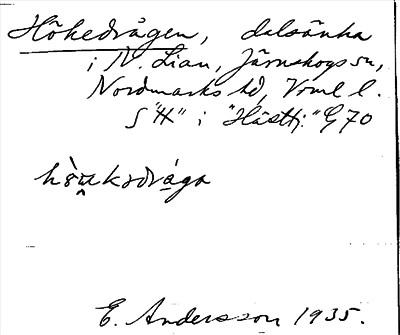 Hökedrågen, dalsänka
i N. Lian, Järnskogs sn,
Nordmarks hd, Vrml l.
S "H" i "Hästtj." G 70
E. Andersson 1935.